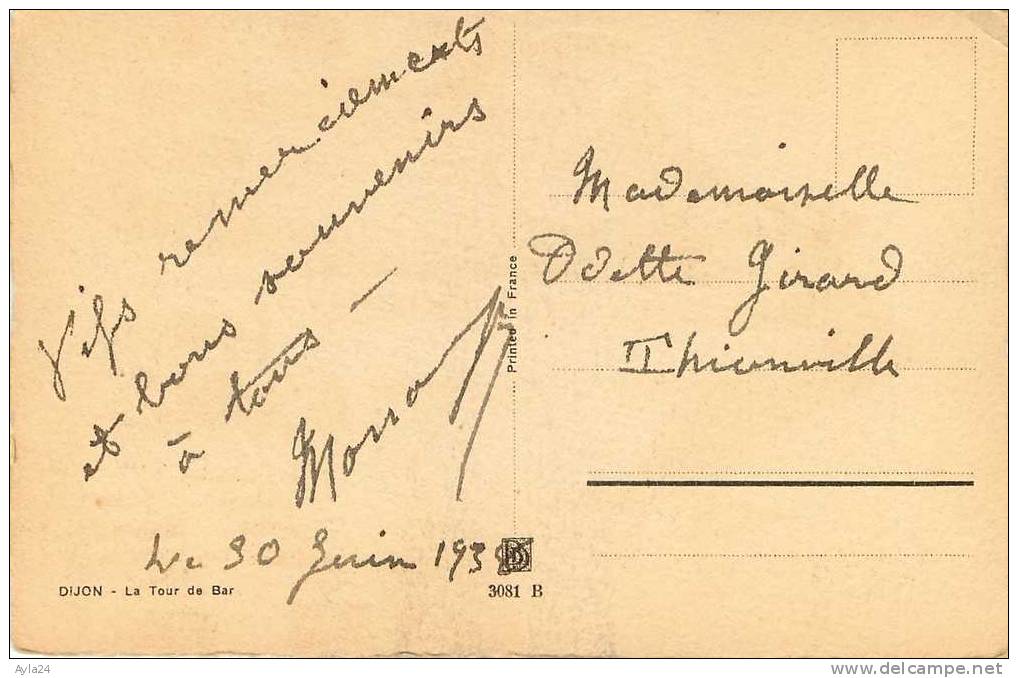 Vifs remerciements
et bons souvenirs
à tous —
Le 30 Juin 193
DIJON - La Tour de Bar
3081 B
Printed in France
Mademoiselle
Odette Girard
Thionville
Ayla24
www.delcampe.net